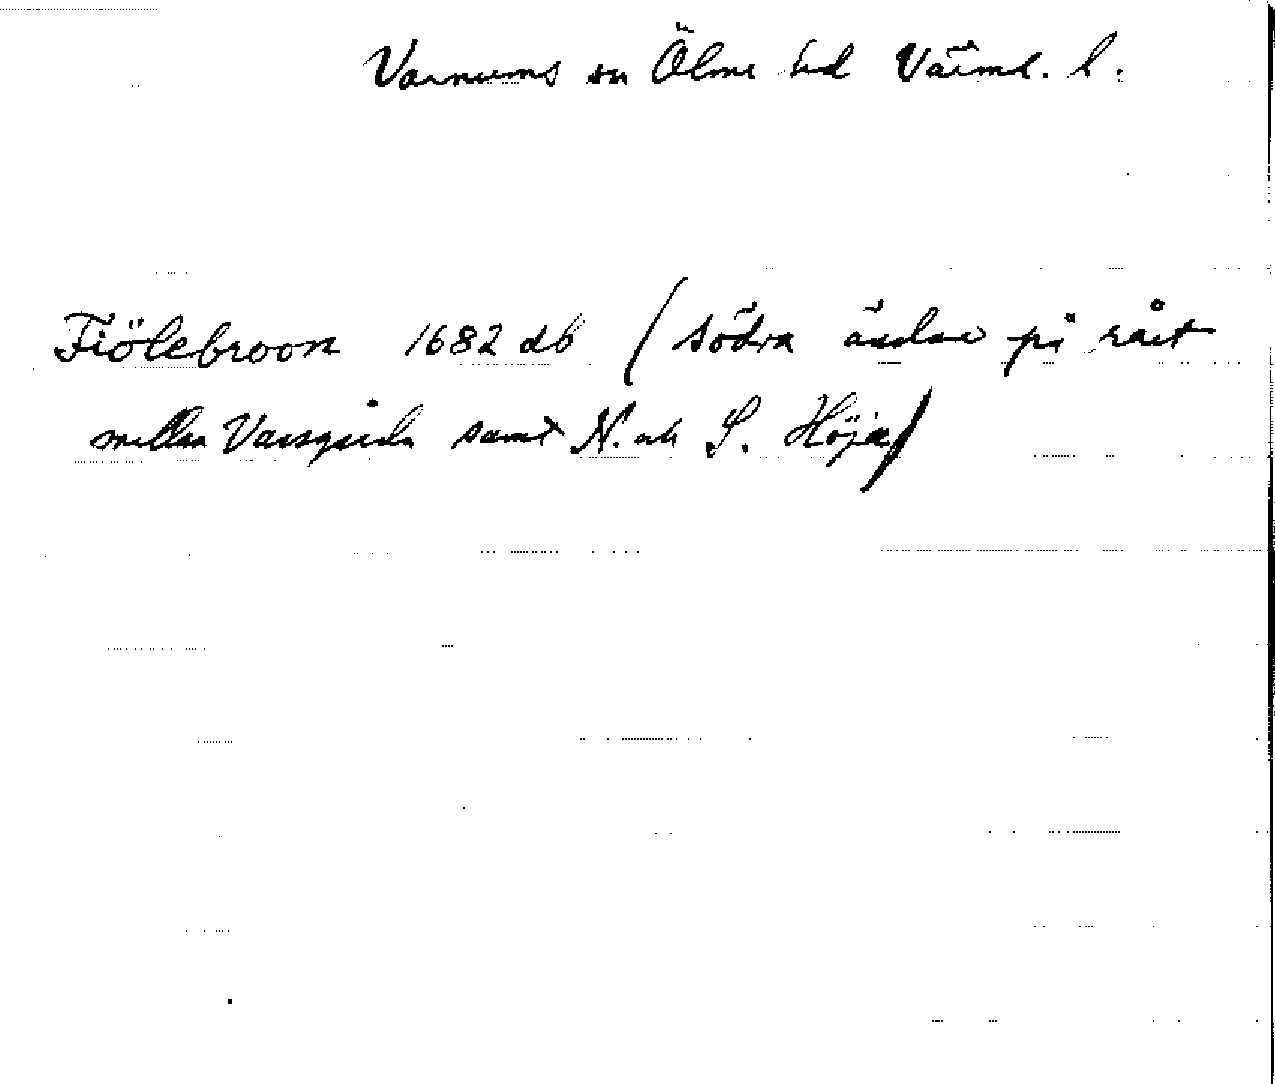 Varnums sn Ölme hd Värml. l.
Fiölebroon 1682 db (södra ändan på rået
mellan samt N. och S. Höja)